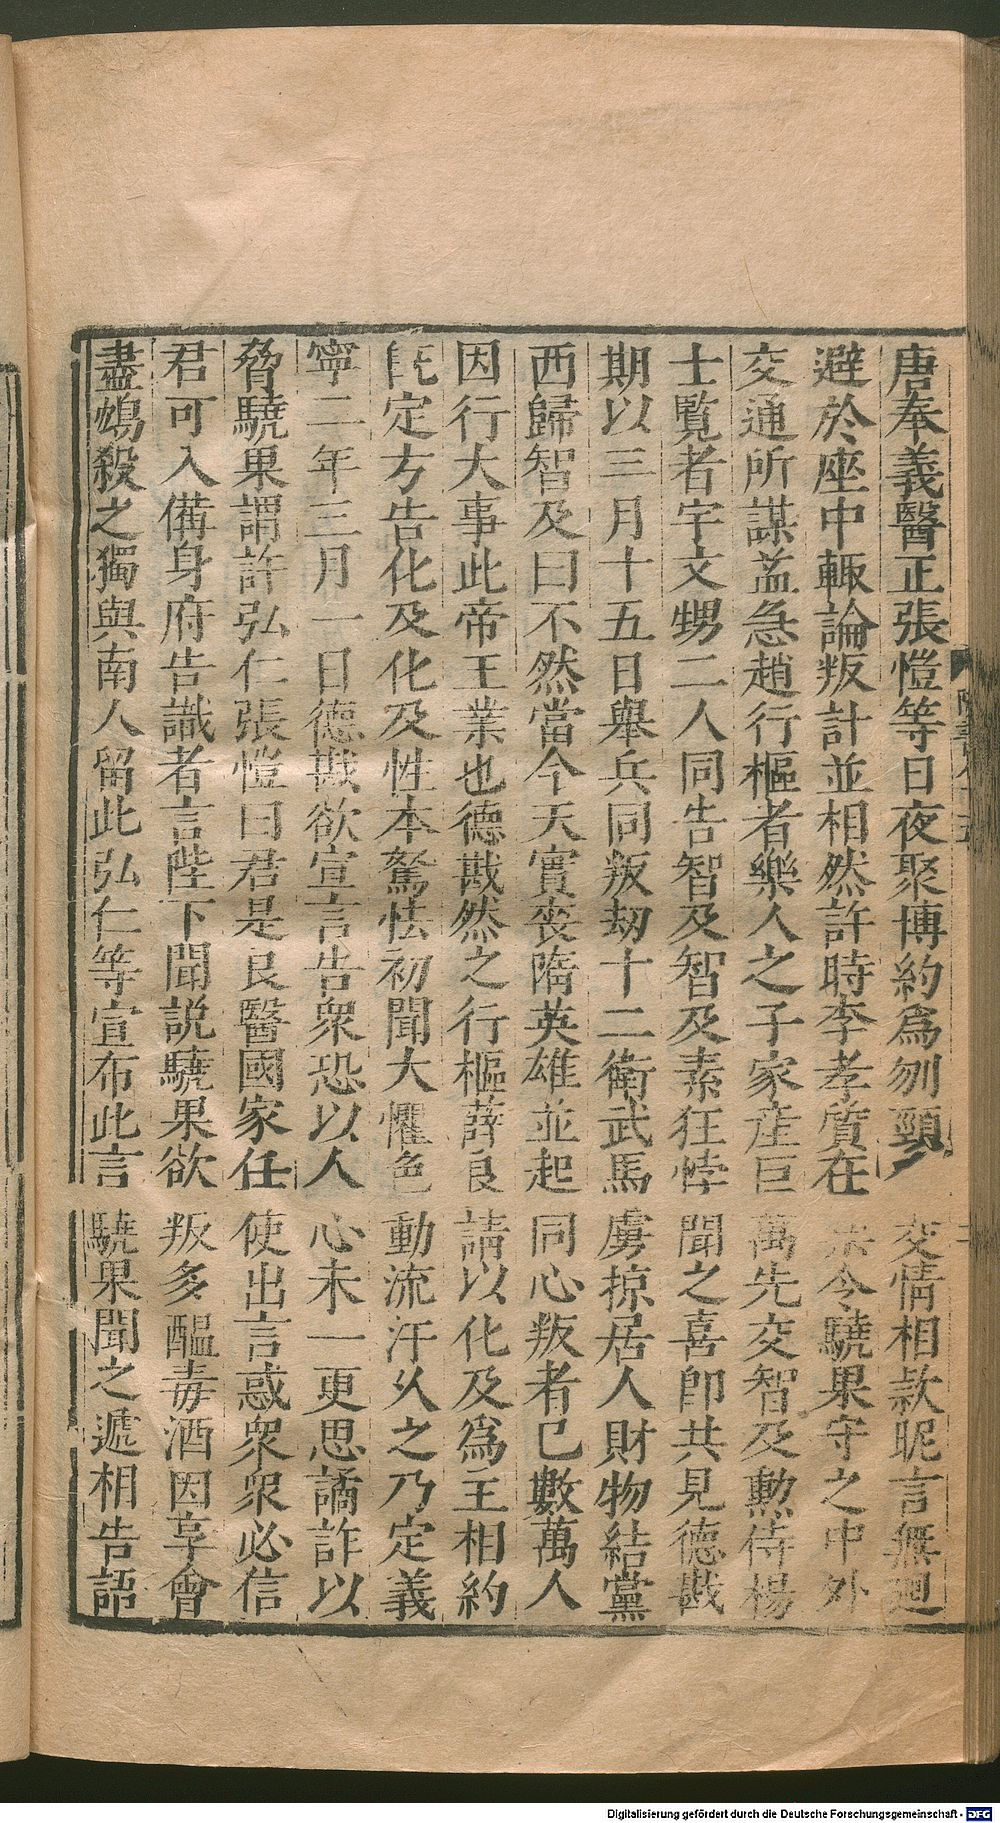 唐奉義醫正張愷等日夜聚博約爲刎頸交情相款昵言無廻
避於座中輒論叛計並相然許時李孝質在禁令驍果守之中外
交通所謀益急趙行樞者樂人之子家產巨萬先交智及勲侍楊
士覽者宇文甥二人同告智及智及素狂悖聞之喜卽共見德戡
期以三月十五日舉兵同叛刼十二衛武馬虜掠居人財物結黨
西歸智及曰不然當今天實喪隋英雄並起同心叛者已數萬人
因行大事此帝王業也德戡然之行樞薛良請以化及爲主相約
旣定方告化及化及性本駑怯初聞大懼色動流汗久之乃定義
寧二年三月一日德戡欲宣言告衆恐以人心未一更思譎詐以
脅驍果謂許弘仁張愷曰君是良醫國家任使出言惑衆衆必信
君可入備身府告識者言陛下聞説驍果欲叛多醞毒酒因享會
盡鴆殺之獨與南人留此弘仁等宣布此言驍果聞之遞相告語
Digitalisierung gefördert durch die Deutsche Forschungsgemeinschaft - DFG